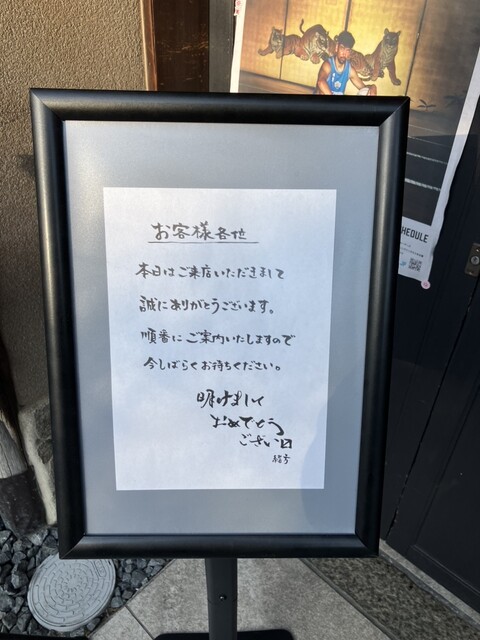 お客様各位
本日はご来店いただきまして
誠にありがとうございます。
順番にご案内いたしますので
今しばらくお待ちください。
明けまして
おめでとう
ござい〼
HEDULE